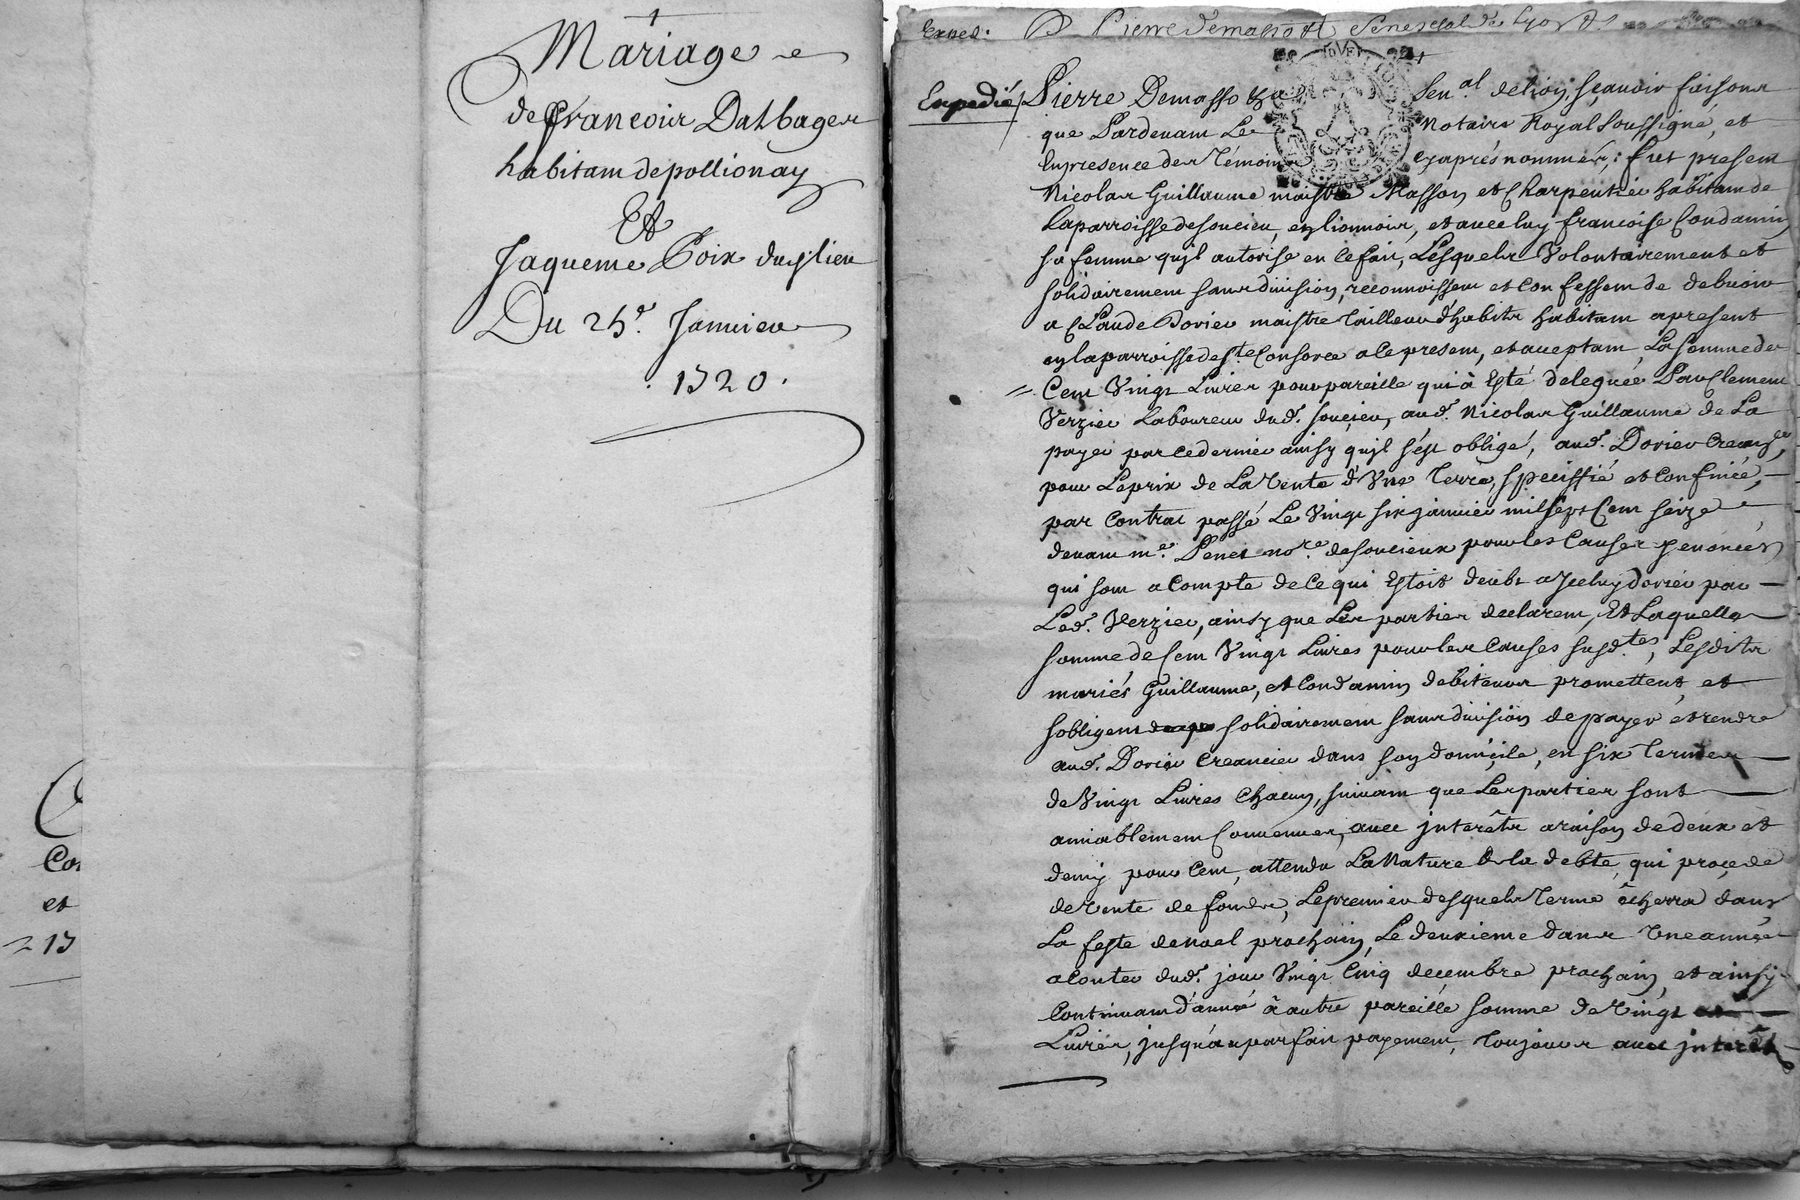 Mariage
de françois Dalbager
habitant de pollionay
Et
Jaqueme Poix dud. lieu
Du 25e. Janvier
. 1720 .
Co
et
17
Exped. Pierre Demasso &a Senechal de Lyon
Expedié / Pierre Demasso &a Sen.al de Lion, sçavoir faisons
que Pardevant Le Notaire Royal Soussigné, et
En presence des Témoins cy aprés nommés, fut present
Nicolas Guillaume maistre Masson et Charpentier habitant de
La parroisse de soucieu, en lionnois, et avec luy francoise Condamin
sa femme qu'jl autorise en ce fait, Lesquels Volontairement et
solidairement sans division, reconnoissent et Confessent de debvoir
a Claude Dorier maistre Tailleur d'habits habitant a present
en la parroisse de s.te Consorce a ce present, et acceptant, La somme de
= Cent Vingt Livres pour pareille qui à Esté deleguée Par Clement
Verzier Laboureur dud. soucieu, aud. Nicolas Guillaume de La
payer par ce dernier ainsy qu'jl s'est obligé, aud. Dorier Creancier
pour Le prix de La Vente d'Une Terre, speciffié et Confinée,
par Contrat passé Le Vingt six janvier mil sept Cent seize
devant m.e Penet no.re de soucieux pour les Causes y enoncées
qui sont a Compte de ce qui Estoit deubt a Jceluy dorier par
Led. Verzier, ainsy que Les parties declarent, Et Laquelle
somme de Cent Vingt Livres pour les Causes susd.tes, Lesdits
mariés Guillaume, et Condamin debiteurs promettent, et
s'obligent solidairement sans division de payer et rendre
aud. Dorier Creancier dans son domicile, en six Termes
de Vingt Livres Chacun, suivant que Les parties sont
amiablement Convenues, avec jnterêts a raison de deux et
demy pour Cent, attendu La Nature de la debte, qui procede
de Vente de fonds, Le premier desquels Terme écherra dans
La feste de noel prochain, Le deuxieme dans Une année
a Conter dud. jour Vingt Cinq decembre prochain, et ainsy
Continuant d'année à autre pareille somme de Vingt
Livres, jusqu'au parfait payement, Toujours avec jnterêts